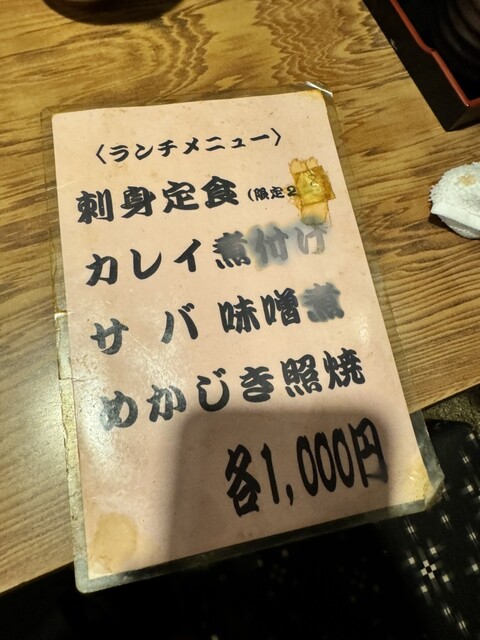 〈ランチメニュー〉
刺身定食（限定2
カレイ煮付け
サバ味噌煮
めかじき照焼
各1,000円